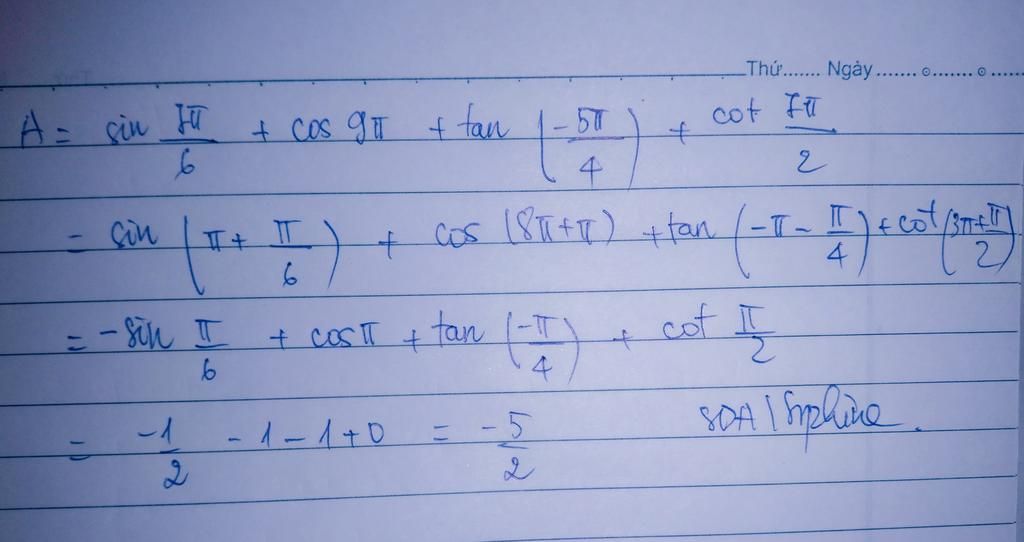 Thứ....... Ngày....... ๏....... ๏.......
A = sin 7π/6 + cos 9π + tan (-5π/4) + cot 7π/2
= sin (π + π/6) + cos (8π+π) + tan (-π - π/4) + cot (3π+π/2)
= -sin π/6 + cosπ + tan (-π/4) + cot π/2
= -1/2 - 1 - 1 + 0 = -5/2